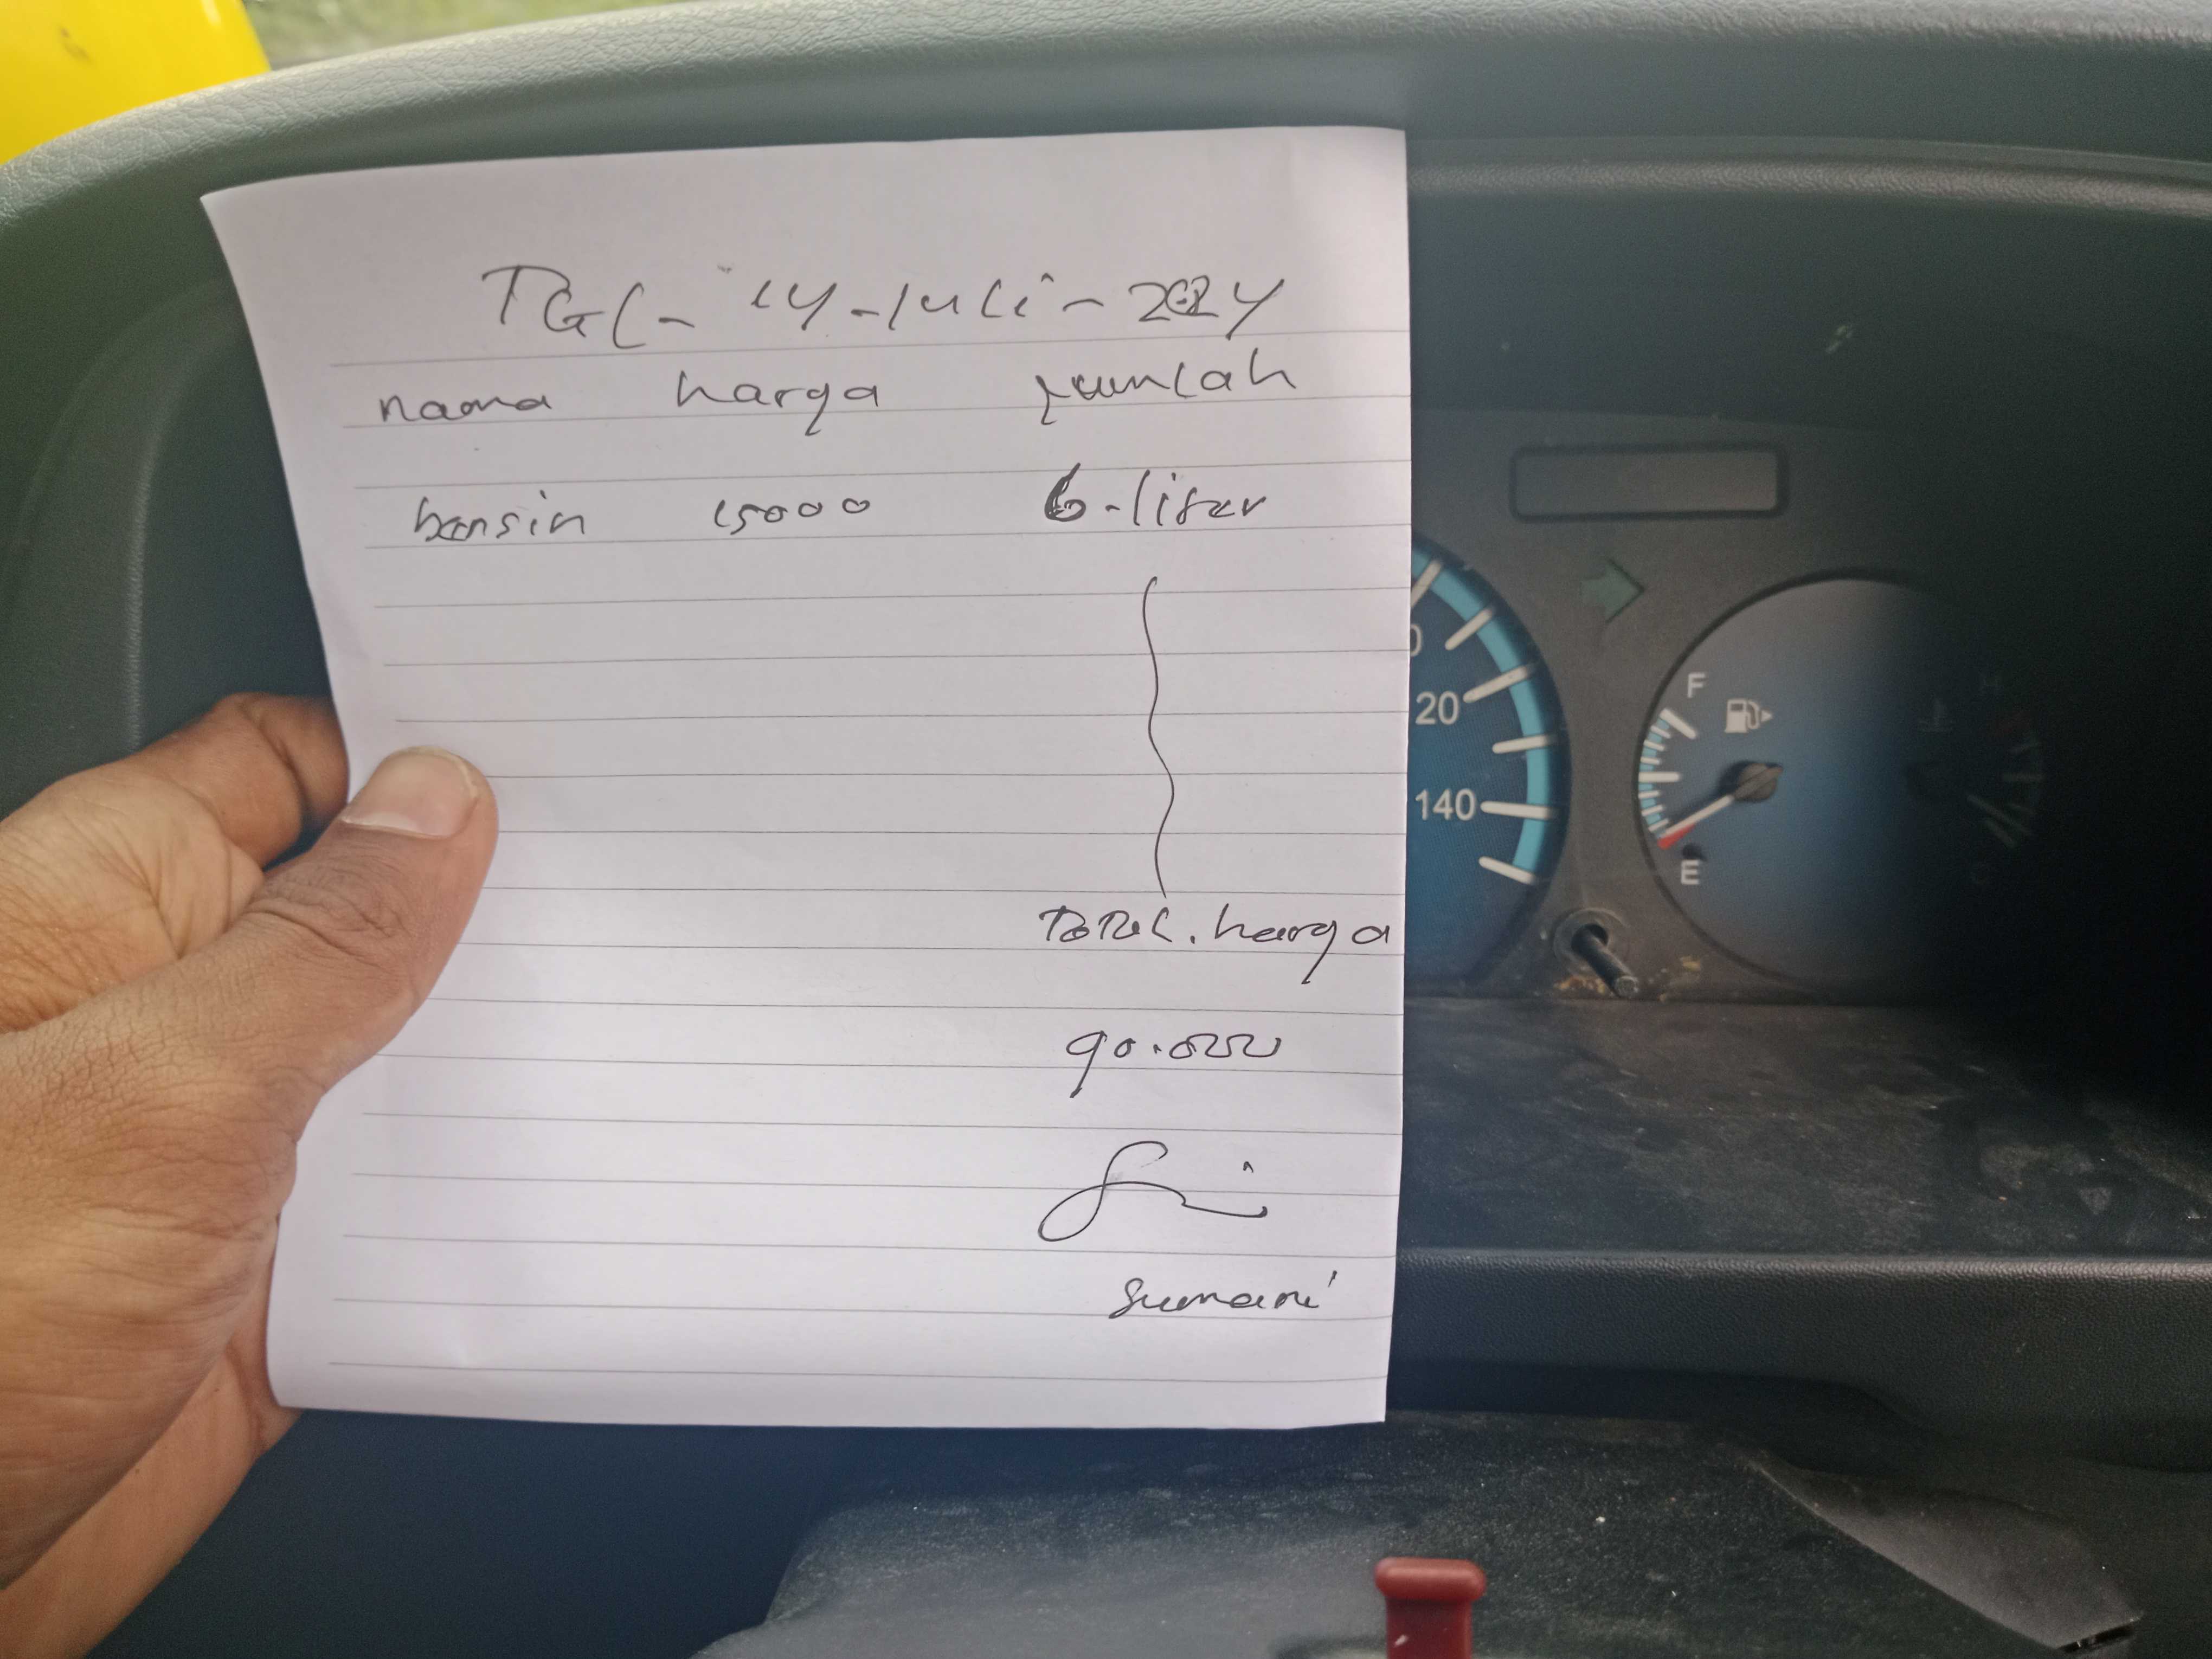 TGL - 14 - Juli - 2024
nama harga jumlah
bensin 15000 6 - liter
Total. harga
90.000
Sumarni
20
140
F
E